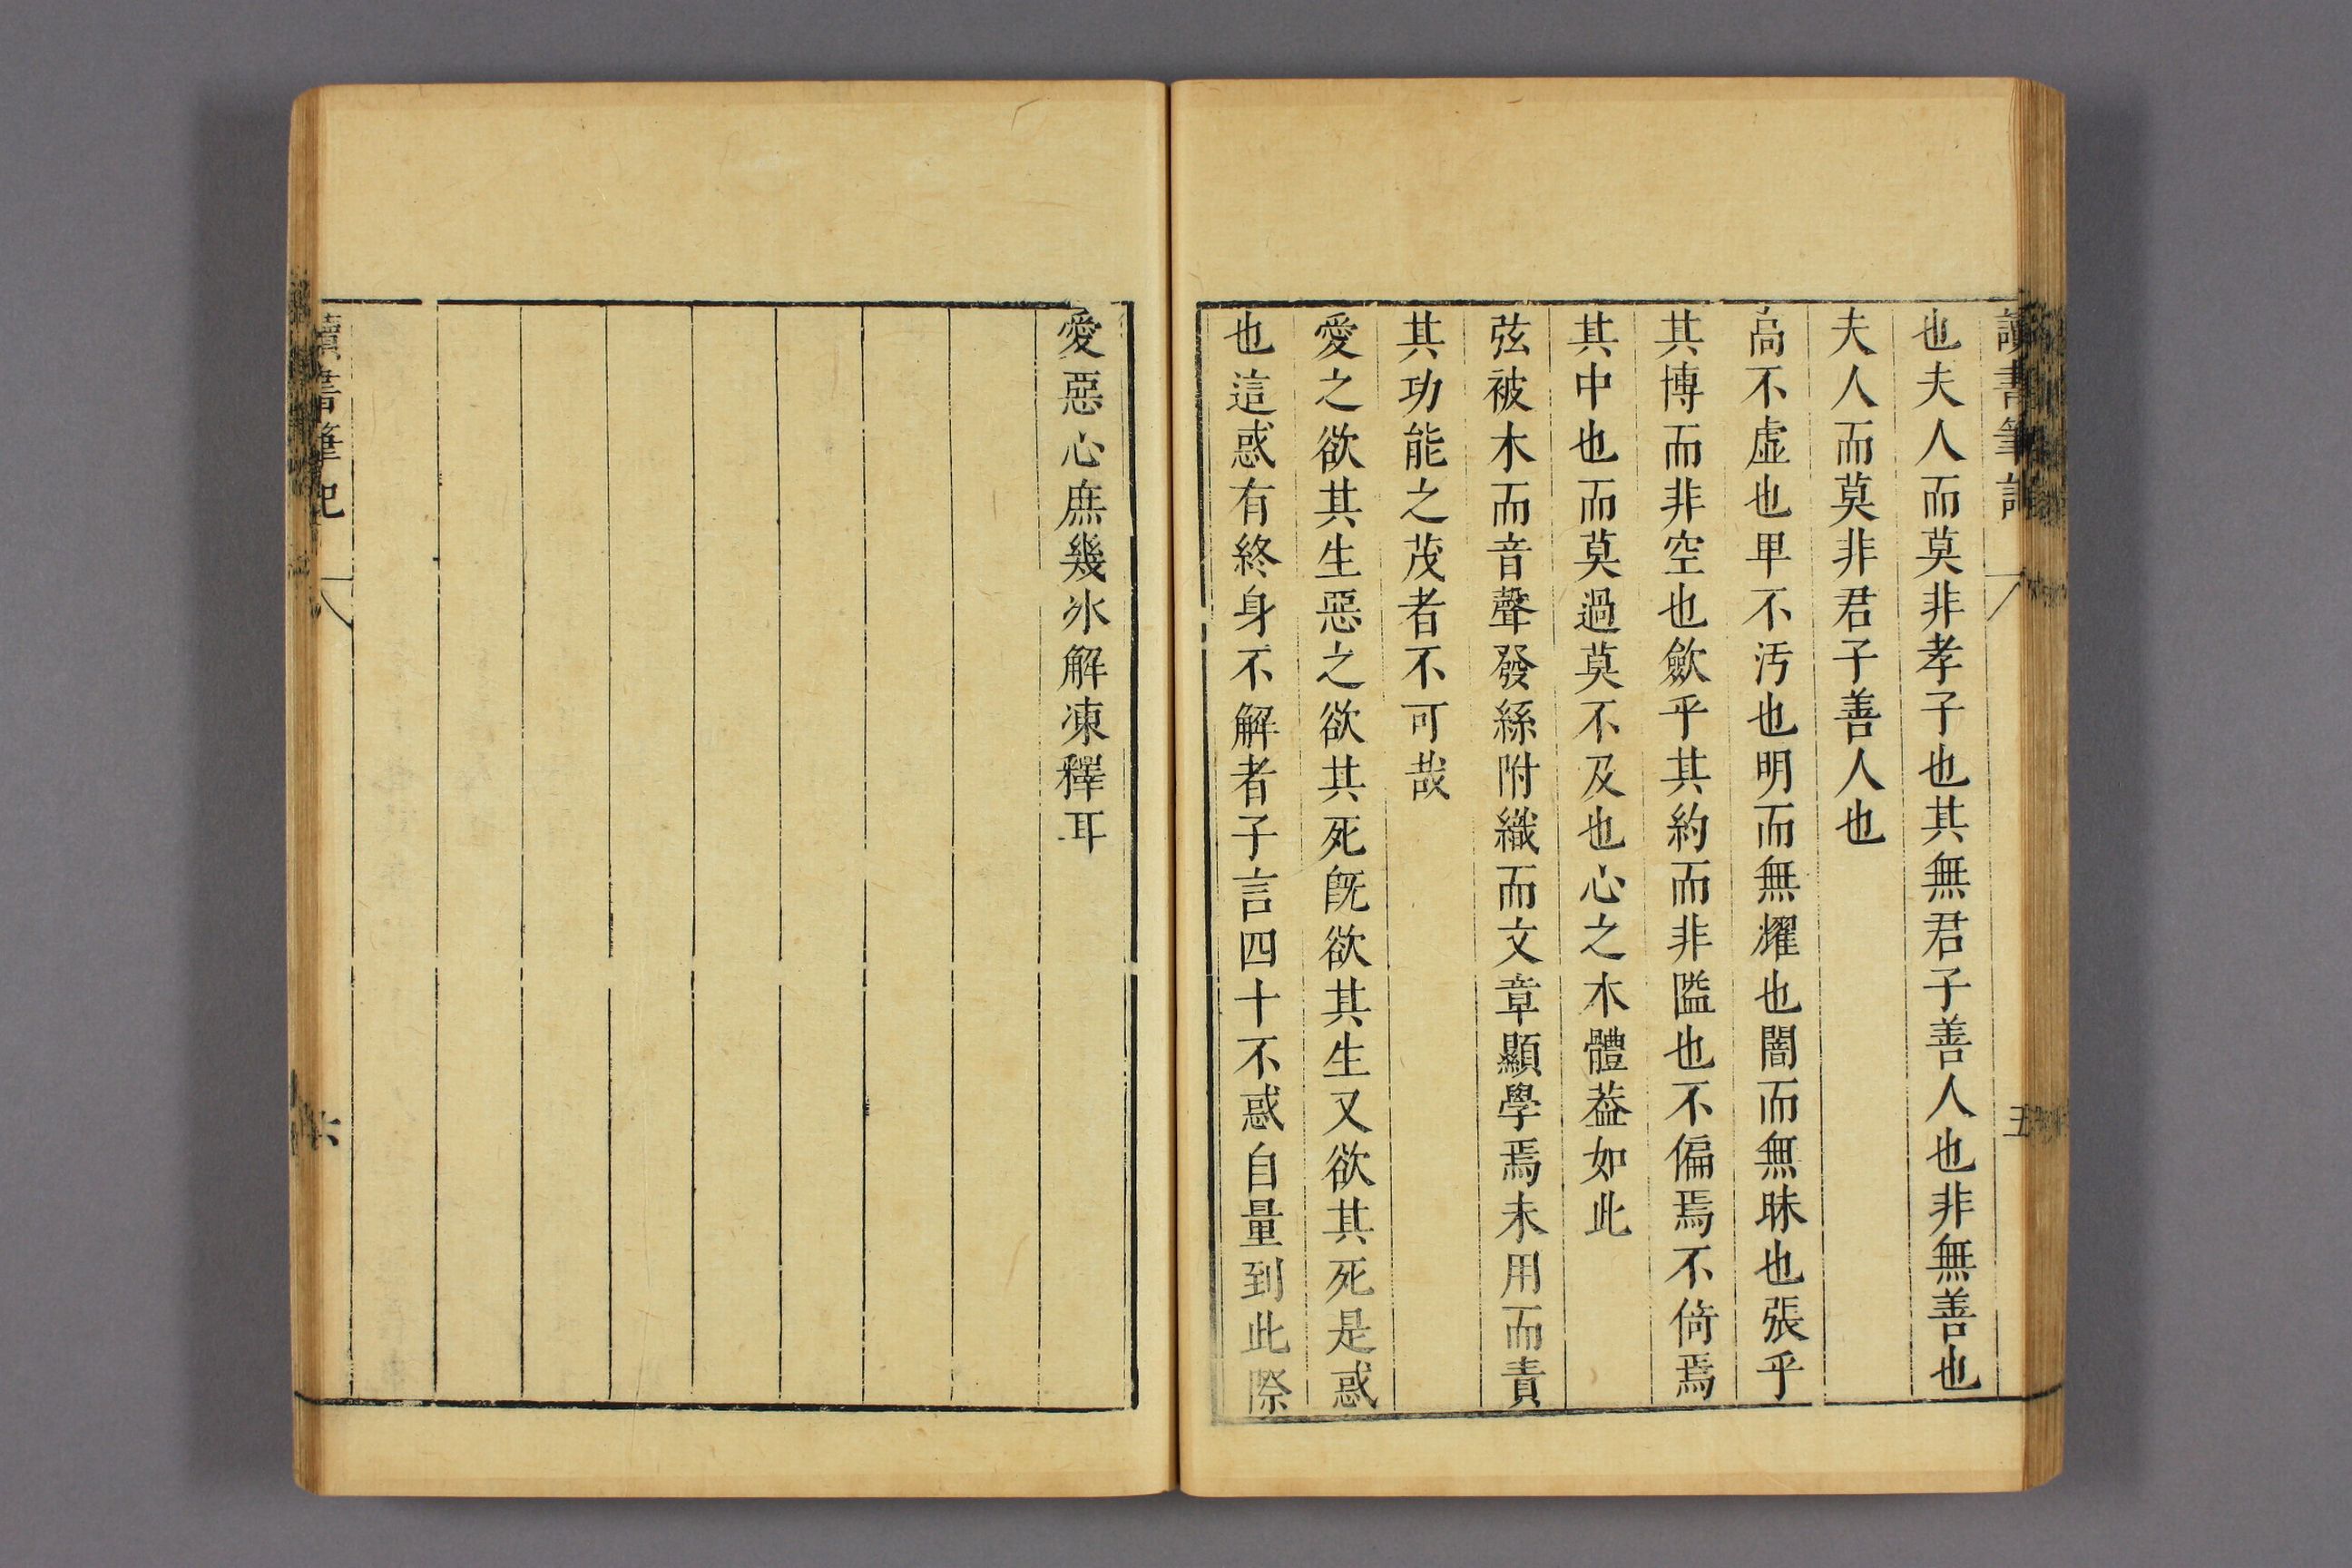 讀書筆記
五
也夫人而莫非孝子也其無君子善人也非無善也
夫人而莫非君子善人也
高不虛也卑不汚也明而無燿也闇而無昧也張乎
其博而非空也歛乎其約而非隘也不偏焉不倚焉
其中也而莫過莫不及也心之本體葢如此
弦被木而音聲發絲附織而文章顯學焉未用而責
其功能之茂者不可哉
愛之欲其生惡之欲其死旣欲其生又欲其死是惑
也這惑有終身不解者子言四十不惑自量到此際
愛惡心庶幾氷解凍釋耳
讀書筆記
六